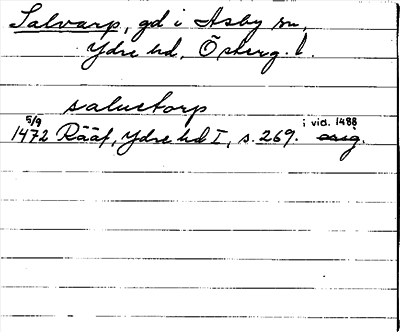 Salvarp, gd i Asby sn,
Ydre hd, Österg. l.
saluetorp
5/9 1472 Rääf, Ydre hd I, s. 269. i vid. 1488 orig.